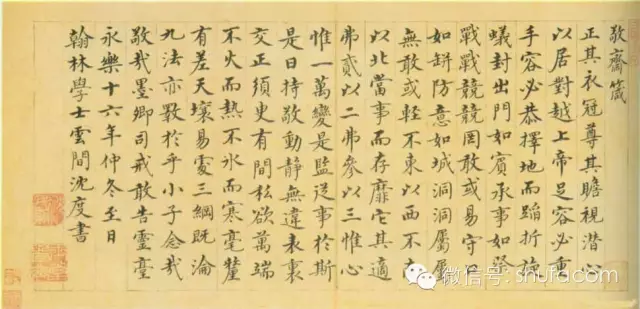 敬齋箴
正其衣冠尊其瞻視潜心
以居對越上帝足容必重
手容必恭擇地而蹈折旋
蟻封出門如賓承事如祭
戰戰兢兢罔敢或易守口
如缾防意如城洞洞屬屬
無敢或輕不東以西不南
以北當事而存靡它其適
弗貳以二弗參以三惟心
惟一萬變是監從事於斯
是曰持敬動静無違表裏
交正須臾有間私欲萬端
不火而熱不氷而寒毫釐
有差天壤易處三綱既淪
九法亦斁於乎小子念哉
敬哉墨卿司戒敢告靈臺
永樂十六年仲冬至日
翰林學士雲間沈度書
微信号: